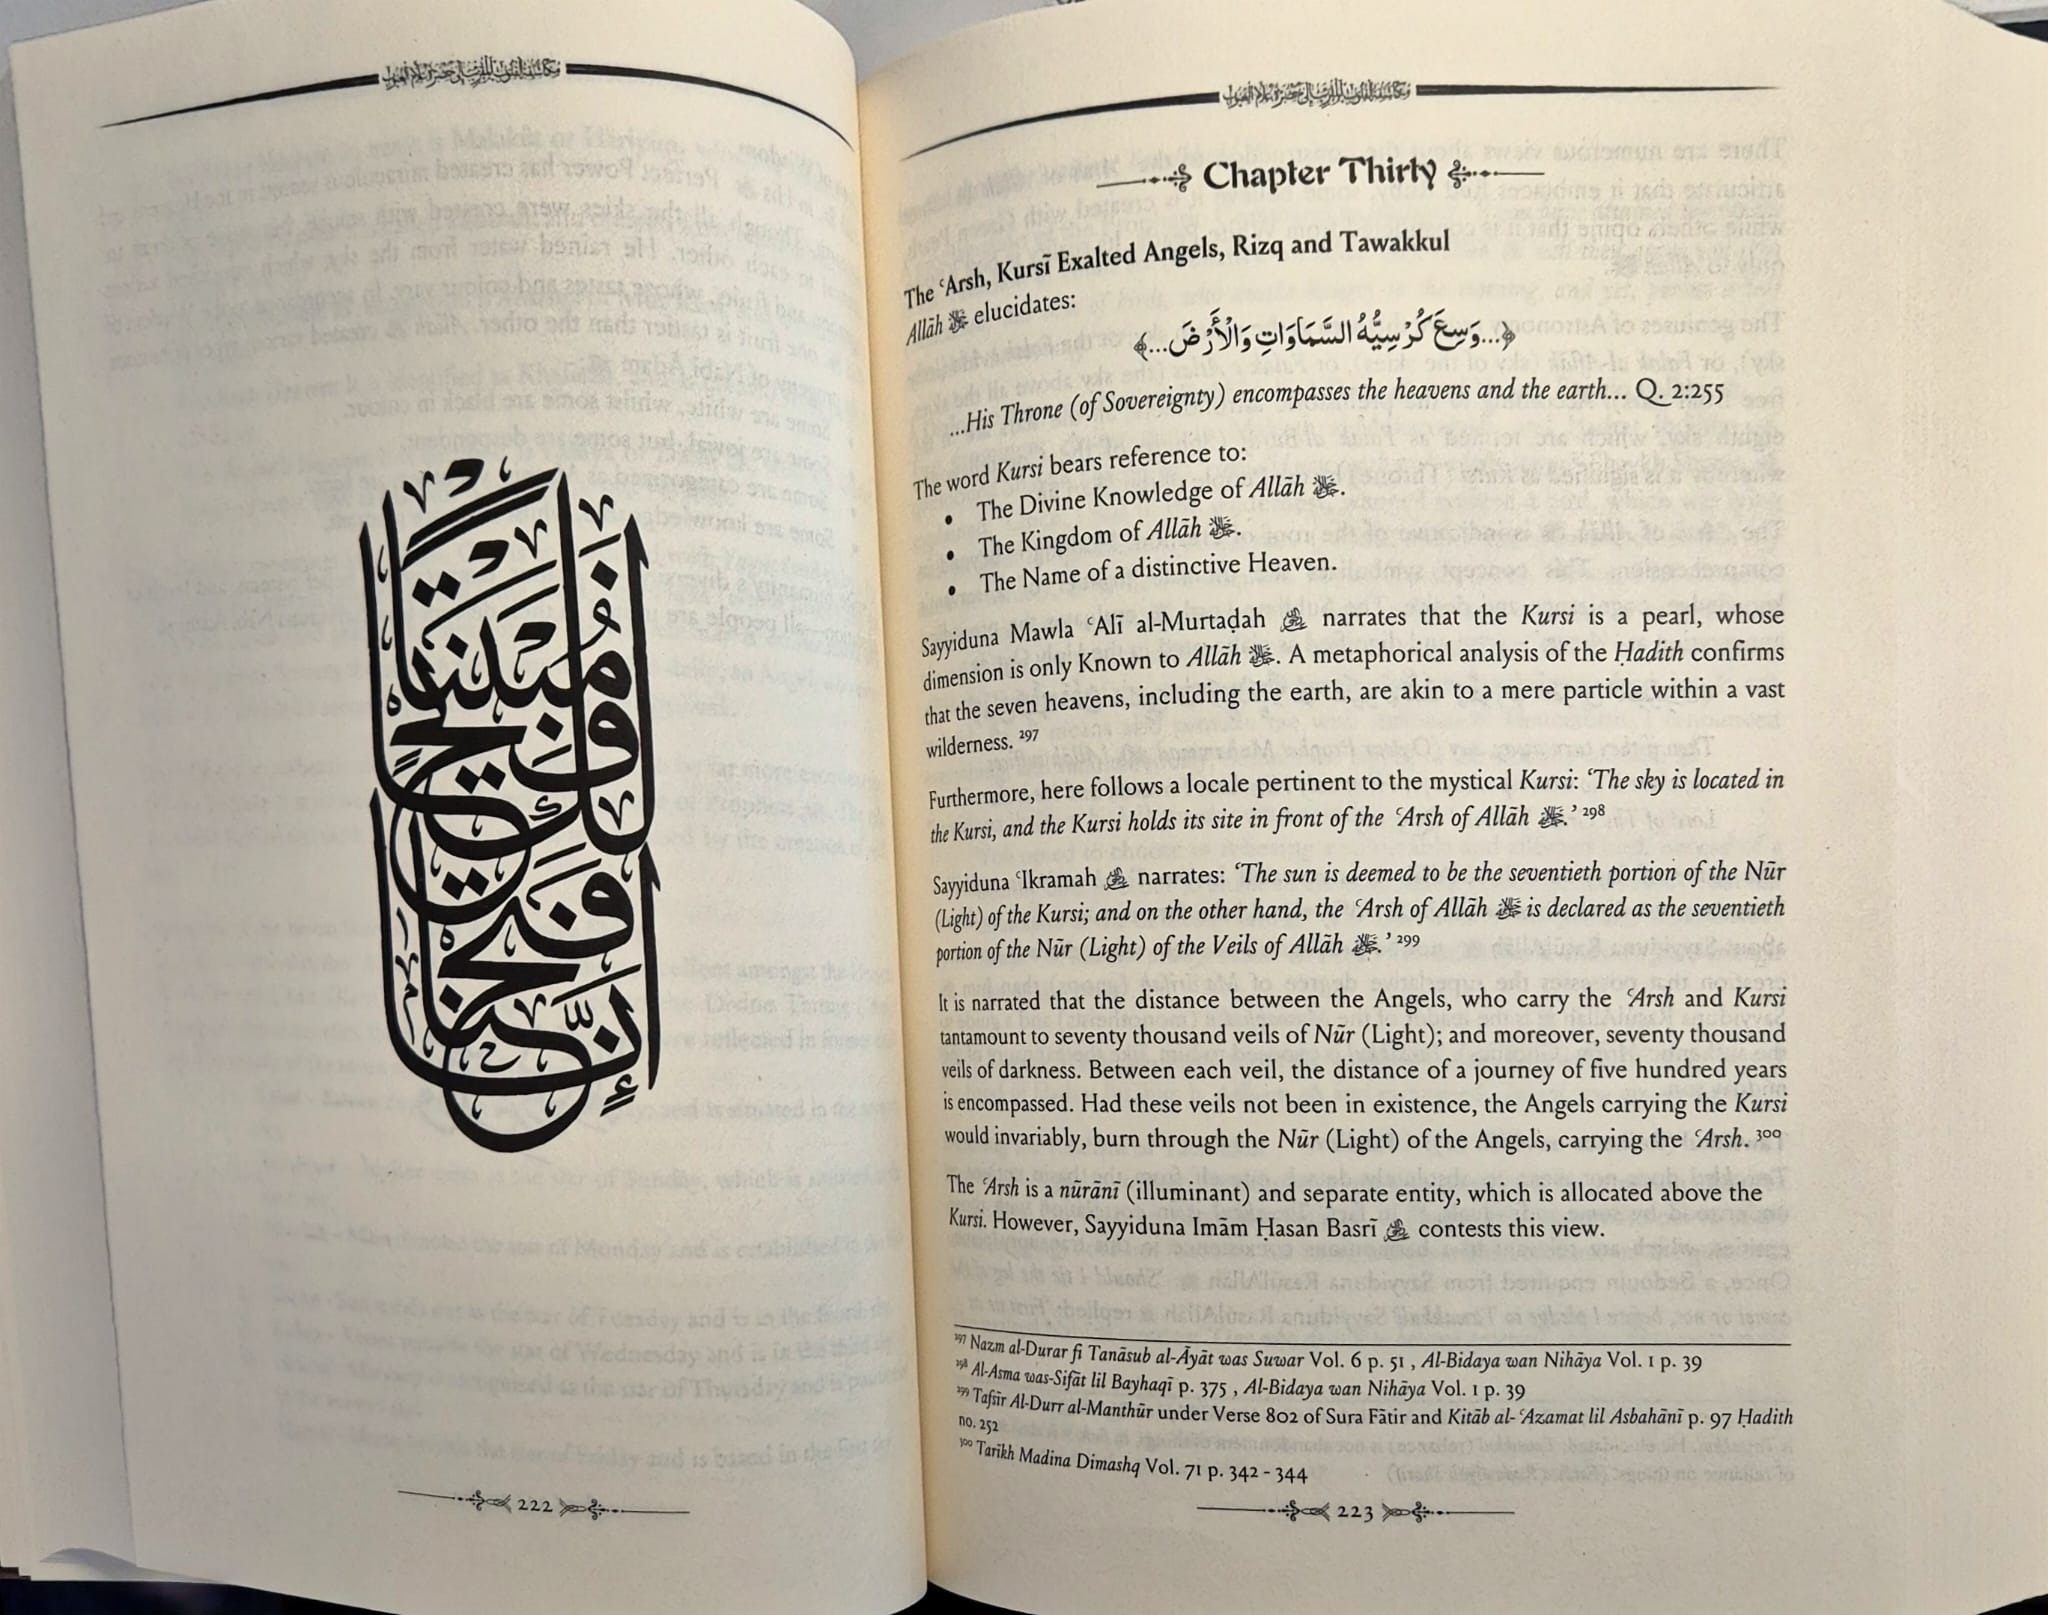 مكاشفة القلوب المقرب إلى حضرة علام الغيوب
إنا فتحنا لك فتحا مبينا
222
مكاشفة القلوب المقرب إلى حضرة علام الغيوب
Chapter Thirty
The ʿArsh, Kursī Exalted Angels, Rizq and Tawakkul
Allāh ﷻ elucidates:
﴿...وَسِعَ كُرْسِيُّهُ السَّمَاوَاتِ وَالْأَرْضَ...﴾
...His Throne (of Sovereignty) encompasses the heavens and the earth... Q. 2:255
The word Kursi bears reference to:
• The Divine Knowledge of Allāh ﷻ.
• The Kingdom of Allāh ﷻ.
• The Name of a distinctive Heaven.
Sayyiduna Mawla ʿAlī al-Murtaḍah narrates that the Kursi is a pearl, whose
dimension is only Known to Allāh ﷻ. A metaphorical analysis of the Ḥadith confirms
that the seven heavens, including the earth, are akin to a mere particle within a vast
wilderness. 297
Furthermore, here follows a locale pertinent to the mystical Kursi: ‘The sky is located in
the Kursi, and the Kursi holds its site in front of the ʿArsh of Allāh ﷻ.’ 298
Sayyiduna ʿIkramah narrates: ‘The sun is deemed to be the seventieth portion of the Nūr
(Light) of the Kursi; and on the other hand, the ʿArsh of Allāh ﷻ is declared as the seventieth
portion of the Nūr (Light) of the Veils of Allāh ﷻ.’ 299
It is narrated that the distance between the Angels, who carry the ʿArsh and Kursi
tantamount to seventy thousand veils of Nūr (Light); and moreover, seventy thousand
veils of darkness. Between each veil, the distance of a journey of five hundred years
is encompassed. Had these veils not been in existence, the Angels carrying the Kursi
would invariably, burn through the Nūr (Light) of the Angels, carrying the ʿArsh. 300
The ʿArsh is a nūrānī (illuminant) and separate entity, which is allocated above the
Kursi. However, Sayyiduna Imām Ḥasan Basrī contests this view.
297 Nazm al-Durar fi Tanāsub al-Āyāt was Suwar Vol. 6 p. 51 , Al-Bidaya wan Nihāya Vol. 1 p. 39
298 Al-Asma was-Sifāt lil Bayhaqī p. 375 , Al-Bidaya wan Nihāya Vol. 1 p. 39
299 Tafsīr Al-Durr al-Manthūr under Verse 802 of Sura Fātir and Kitāb al-ʿAzamat lil Asbahānī p. 97 Ḥadith
no. 252
300 Tarīkh Madina Dimashq Vol. 71 p. 342 - 344
223